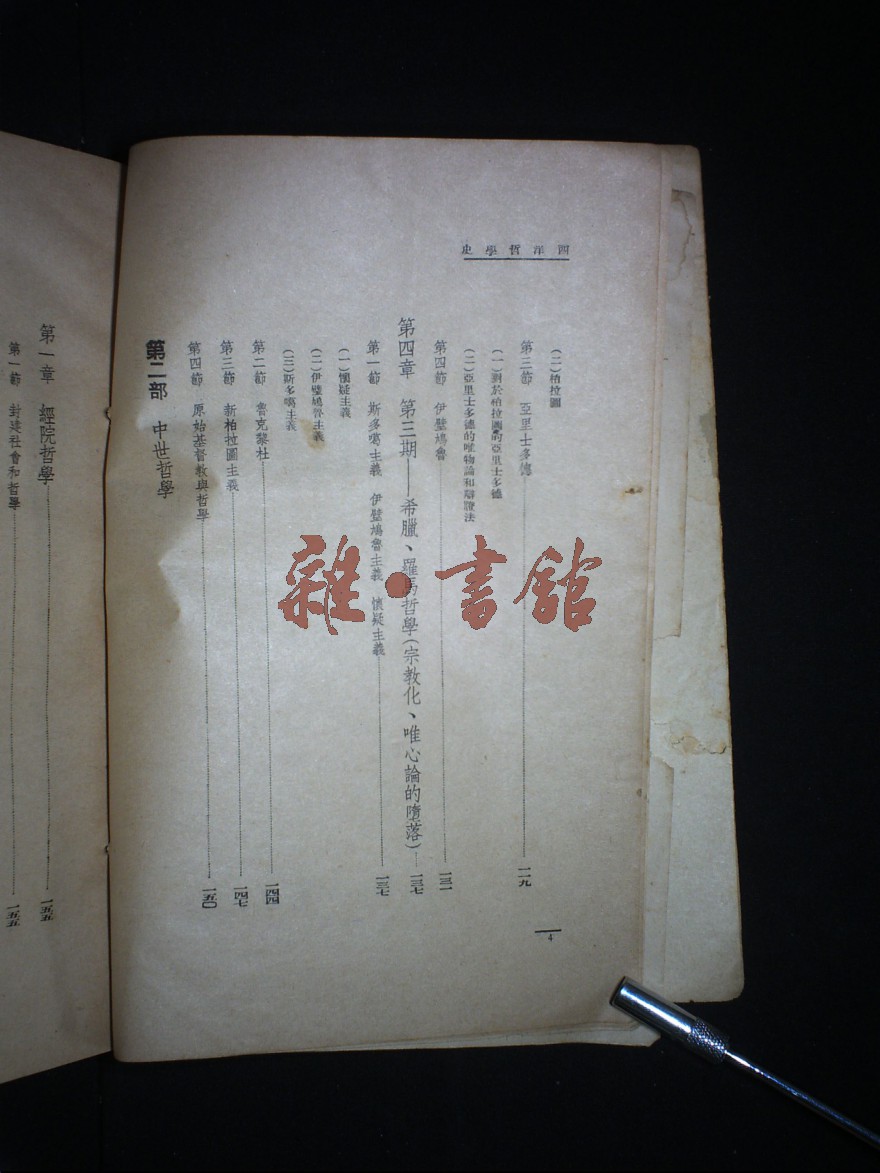 西洋哲學史
（二）柏拉圖
第三節　亞里士多德……一一九
（一）對於柏拉圖的亞里士多德
（二）亞里士多德的唯物論和辯證法
第四節　伊壁鳩魯……一三一
第四章　第三期——希臘、羅馬哲學（宗教化、唯心論的墮落）……一三七
第一節　斯多噶主義　伊壁鳩魯主義　懷疑主義……一三七
（一）懷疑主義
（二）伊壁鳩魯主義
（三）斯多噶主義
第二節　魯克黎杜……一四四
第三節　新柏拉圖主義……一四七
第四節　原始基督教與哲學……一五〇
第二部　中世哲學
4
第一章　經院哲學……一五五
第一節　封建社會和哲學……一五五
雜·書館